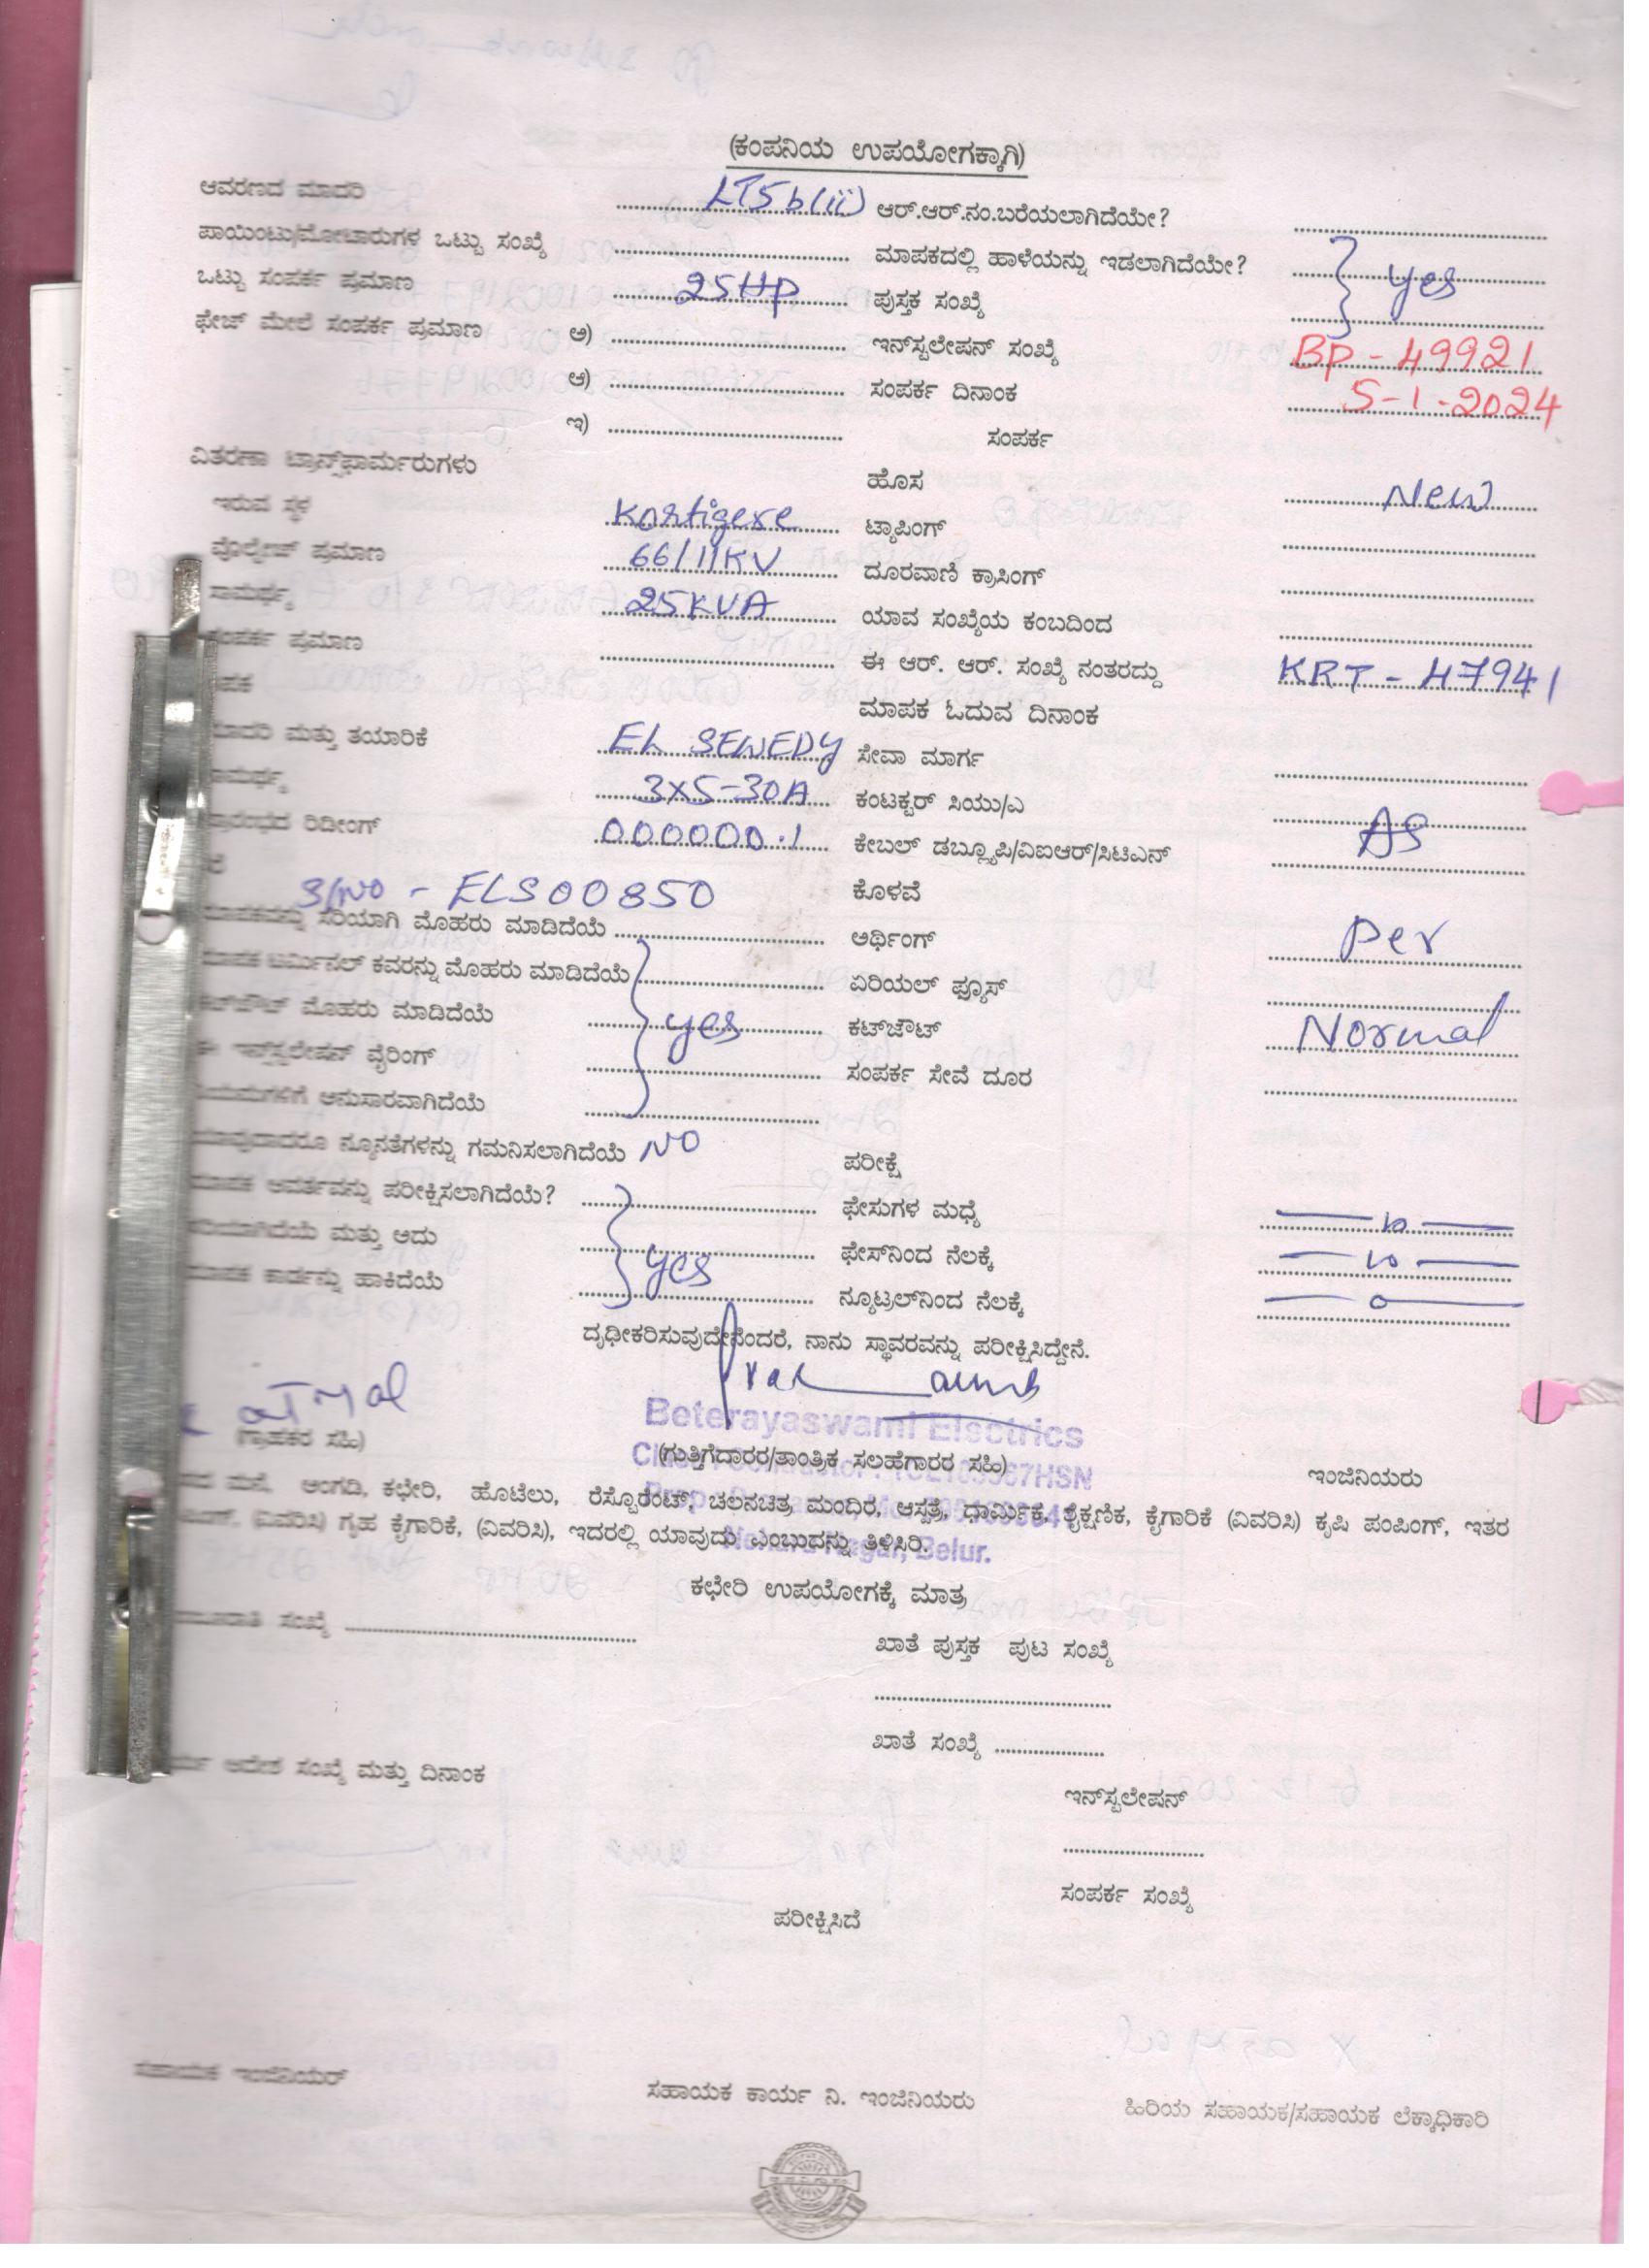 (ಕಂಪನಿಯ ಉಪಯೋಗಕ್ಕಾಗಿ)
ಆವರಣದ ಮಾದರಿ LT5 b(ii) ಆರ್.ಆರ್.ನಂ.ಬರೆಯಲಾಗಿದೆಯೇ?
ಪಾಯಿಂಟು/ಮೋಟಾರುಗಳ ಒಟ್ಟು ಸಂಖ್ಯೆ ಮಾಪಕದಲ್ಲಿ ಹಾಳೆಯನ್ನು ಇಡಲಾಗಿದೆಯೇ? yes
ಒಟ್ಟು ಸಂಪರ್ಕ ಪ್ರಮಾಣ 25HP ಪುಸ್ತಕ ಸಂಖ್ಯೆ
ಫೇಜ್ ಮೇಲೆ ಸಂಪರ್ಕ ಪ್ರಮಾಣ ಅ) ಇನ್‌ಸ್ಟಲೇಷನ್ ಸಂಖ್ಯೆ BP - 49921
ಆ) ಸಂಪರ್ಕ ದಿನಾಂಕ 5-1-2024
ಇ) ಸಂಪರ್ಕ
ವಿತರಣಾ ಟ್ರಾನ್ಸ್‌ಫಾರ್ಮರುಗಳು ಹೊಸ New
ಇರುವ ಸ್ಥಳ Kortigere ಟ್ಯಾಪಿಂಗ್
ವೊಲ್ಟೇಜ್ ಪ್ರಮಾಣ 66/11KV ದೂರವಾಣಿ ಕ್ರಾಸಿಂಗ್
ಸಾಮರ್ಥ್ಯ 25KVA ಯಾವ ಸಂಖ್ಯೆಯ ಕಂಬದಿಂದ
ಸಂಪರ್ಕ ಪ್ರಮಾಣ ಈ ಆರ್. ಆರ್. ಸಂಖ್ಯೆ ನಂತರದ್ದು KRT - 47941
ಮಾಪಕ ಓದುವ ದಿನಾಂಕ
ಮಾದರಿ ಮತ್ತು ತಯಾರಿಕೆ EL SEWEDY ಸೇವಾ ಮಾರ್ಗ
ಸಾಮರ್ಥ್ಯ 3X5-30A ಕಂಟಕ್ಟರ್ ಸಿಯು/ಎ
ಪ್ರಾರಂಭದ ರಿಡೀಂಗ್ 000000.1 ಕೇಬಲ್ ಡಬ್ಲ್ಯೂಪಿ/ವಿಐಆರ್/ಸಿಟಿಎನ್ AS
S/NO - ELS00850 ಕೊಳವೆ
ಮಾಪಕವನ್ನು ಸರಿಯಾಗಿ ಮೊಹರು ಮಾಡಿದೆಯೆ ಅರ್ಥಿಂಗ್ Per
ಮಾಪಕ ಟರ್ಮಿನಲ್ ಕವರನ್ನು ಮೊಹರು ಮಾಡಿದೆಯೆ ಏರಿಯಲ್ ಫ್ಯೂಸ್
ಕಟ್‌ಔಟ್ ಮೊಹರು ಮಾಡಿದೆಯೆ yes ಕಟ್‌ಔಟ್ Normal
ಈ ಇನ್‌ಸ್ಟಲೇಷನ್ ವೈರಿಂಗ್ ಸಂಪರ್ಕ ಸೇವೆ ದೂರ
ನಿಯಮಗಳಿಗೆ ಅನುಸಾರವಾಗಿದೆಯೆ
ಯಾವುದಾದರೂ ನ್ಯೂನತೆಗಳನ್ನು ಗಮನಿಸಲಾಗಿದೆಯೆ NO ಪರೀಕ್ಷೆ
ಮಾಪಕ ಆವರ್ತವನ್ನು ಪರೀಕ್ಷಿಸಲಾಗಿದೆಯೆ? ಫೇಸುಗಳ ಮಧ್ಯೆ — 10 —
ಸರಿಯಾಗಿದೆಯೆ ಮತ್ತು ಅದು yes ಫೇಸ್‌ನಿಂದ ನೆಲಕ್ಕೆ — 10 —
ಮಾಪಕ ಕಾರ್ಡನ್ನು ಹಾಕಿದೆಯೆ ನ್ಯೂಟ್ರಲ್‌ನಿಂದ ನೆಲಕ್ಕೆ — 0 —
ದೃಢೀಕರಿಸುವುದೇನೆಂದರೆ, ನಾನು ಸ್ಥಾವರವನ್ನು ಪರೀಕ್ಷಿಸಿದ್ದೇನೆ.
Beterayaswami Elsctrics
(ಗ್ರಾಹಕರ ಸಹಿ) (ಗುತ್ತಿಗೆದಾರರ/ತಾಂತ್ರಿಕ ಸಲಹೆಗಾರರ ಸಹಿ) ಇಂಜಿನಿಯರು
67HSN
ಮನೆ, ಅಂಗಡಿ, ಕಛೇರಿ, ಹೊಟೆಲು, ರೆಸ್ಟೊರೆಂಟ್, ಚಲನಚಿತ್ರ ಮಂದಿರ, ಆಸ್ಪತ್ರೆ, ಧಾರ್ಮಿಕ, ಶೈಕ್ಷಣಿಕ, ಕೈಗಾರಿಕೆ (ವಿವರಿಸಿ) ಕೃಷಿ ಪಂಪಿಂಗ್, ಇತರ
(ವಿವರಿಸಿ) ಗೃಹ ಕೈಗಾರಿಕೆ, (ವಿವರಿಸಿ), ಇದರಲ್ಲಿ ಯಾವುದು ಎಂಬುದನ್ನು ತಿಳಿಸಿರಿ.
Nehru Nagar, Belur.
ಕಛೇರಿ ಉಪಯೋಗಕ್ಕೆ ಮಾತ್ರ
ಸಂಖ್ಯೆ
ಖಾತೆ ಪುಸ್ತಕ ಪುಟ ಸಂಖ್ಯೆ
ಖಾತೆ ಸಂಖ್ಯೆ
ಆದೇಶ ಸಂಖ್ಯೆ ಮತ್ತು ದಿನಾಂಕ
ಇನ್‌ಸ್ಟಲೇಷನ್
ಸಂಪರ್ಕ ಸಂಖ್ಯೆ
ಪರೀಕ್ಷಿಸಿದೆ
ಸಹಾಯಕ ಇಂಜಿನಿಯರ್ ಸಹಾಯಕ ಕಾರ್ಯ ನಿ. ಇಂಜಿನಿಯರು ಹಿರಿಯ ಸಹಾಯಕ/ಸಹಾಯಕ ಲೆಕ್ಕಾಧಿಕಾರಿ